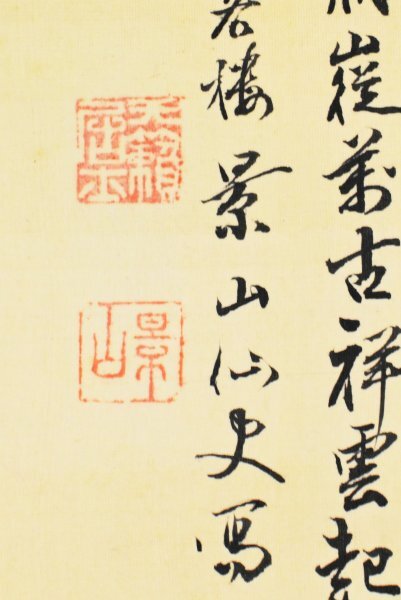 嵷萬古祥雲起
樓景山仙史写
景山